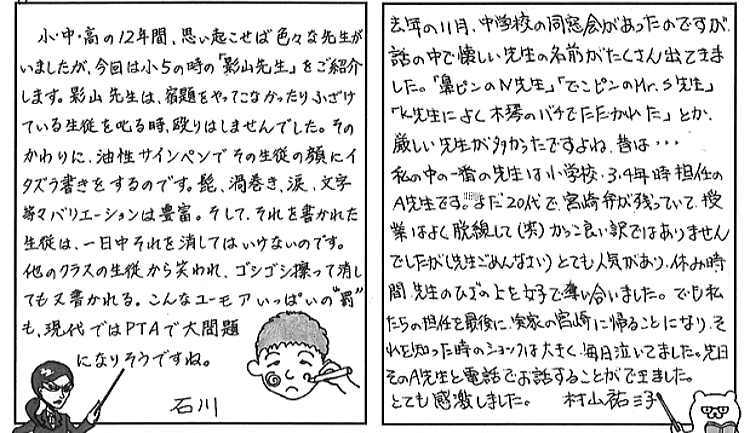 小・中・高の12年間、思い起こせば色々な先生が
いましたが、今回は小5の時の「影山先生」をご紹介
します。影山先生は、宿題をやってこなかったりふざけ
ている生徒を叱る時、殴りはしませんでした。その
かわりに、油性サインペンでその生徒の顔にイ
タズラ書きをするのです。髭、渦巻き、涙、文字
等々バリエーションは豊富。そして、それを書かれた
生徒は、一日中それを消してはいけないのです。
他のクラスの生徒から笑われ、ゴシゴシ擦って消し
ても又書かれる。こんなユーモアいっぱいの"罰"
も、現代ではPTAで大問題
になりそうですね。
石川
去年の11月、中学校の同窓会があったのですが、
話の中で懐しい先生の名前がたくさん出てきま
した。「鼻ピンのN先生」「でこピンのMr.S先生」
「K先生によく木琴のバチでたたかれた」とか、
厳しい先生が多かったですよね、昔は・・・
私の中の一番の先生は小学校、3、4年時担任の
A先生です。まだ20代で、宮崎弁が残っていて、授
業はよく脱線して(笑)かっこ良い訳ではありません
でしたが(先生ごめんなさい)とても人気があり、休み時
間、先生のひざの上を女子で奪い合いました。でも私
たちの担任を最後に、実家の宮崎に帰ることになり、そ
れを知った時のショックは大きく、毎日泣いてました。先日
そのA先生と電話でお話することができました。
とても感激しました。 村山祐三子